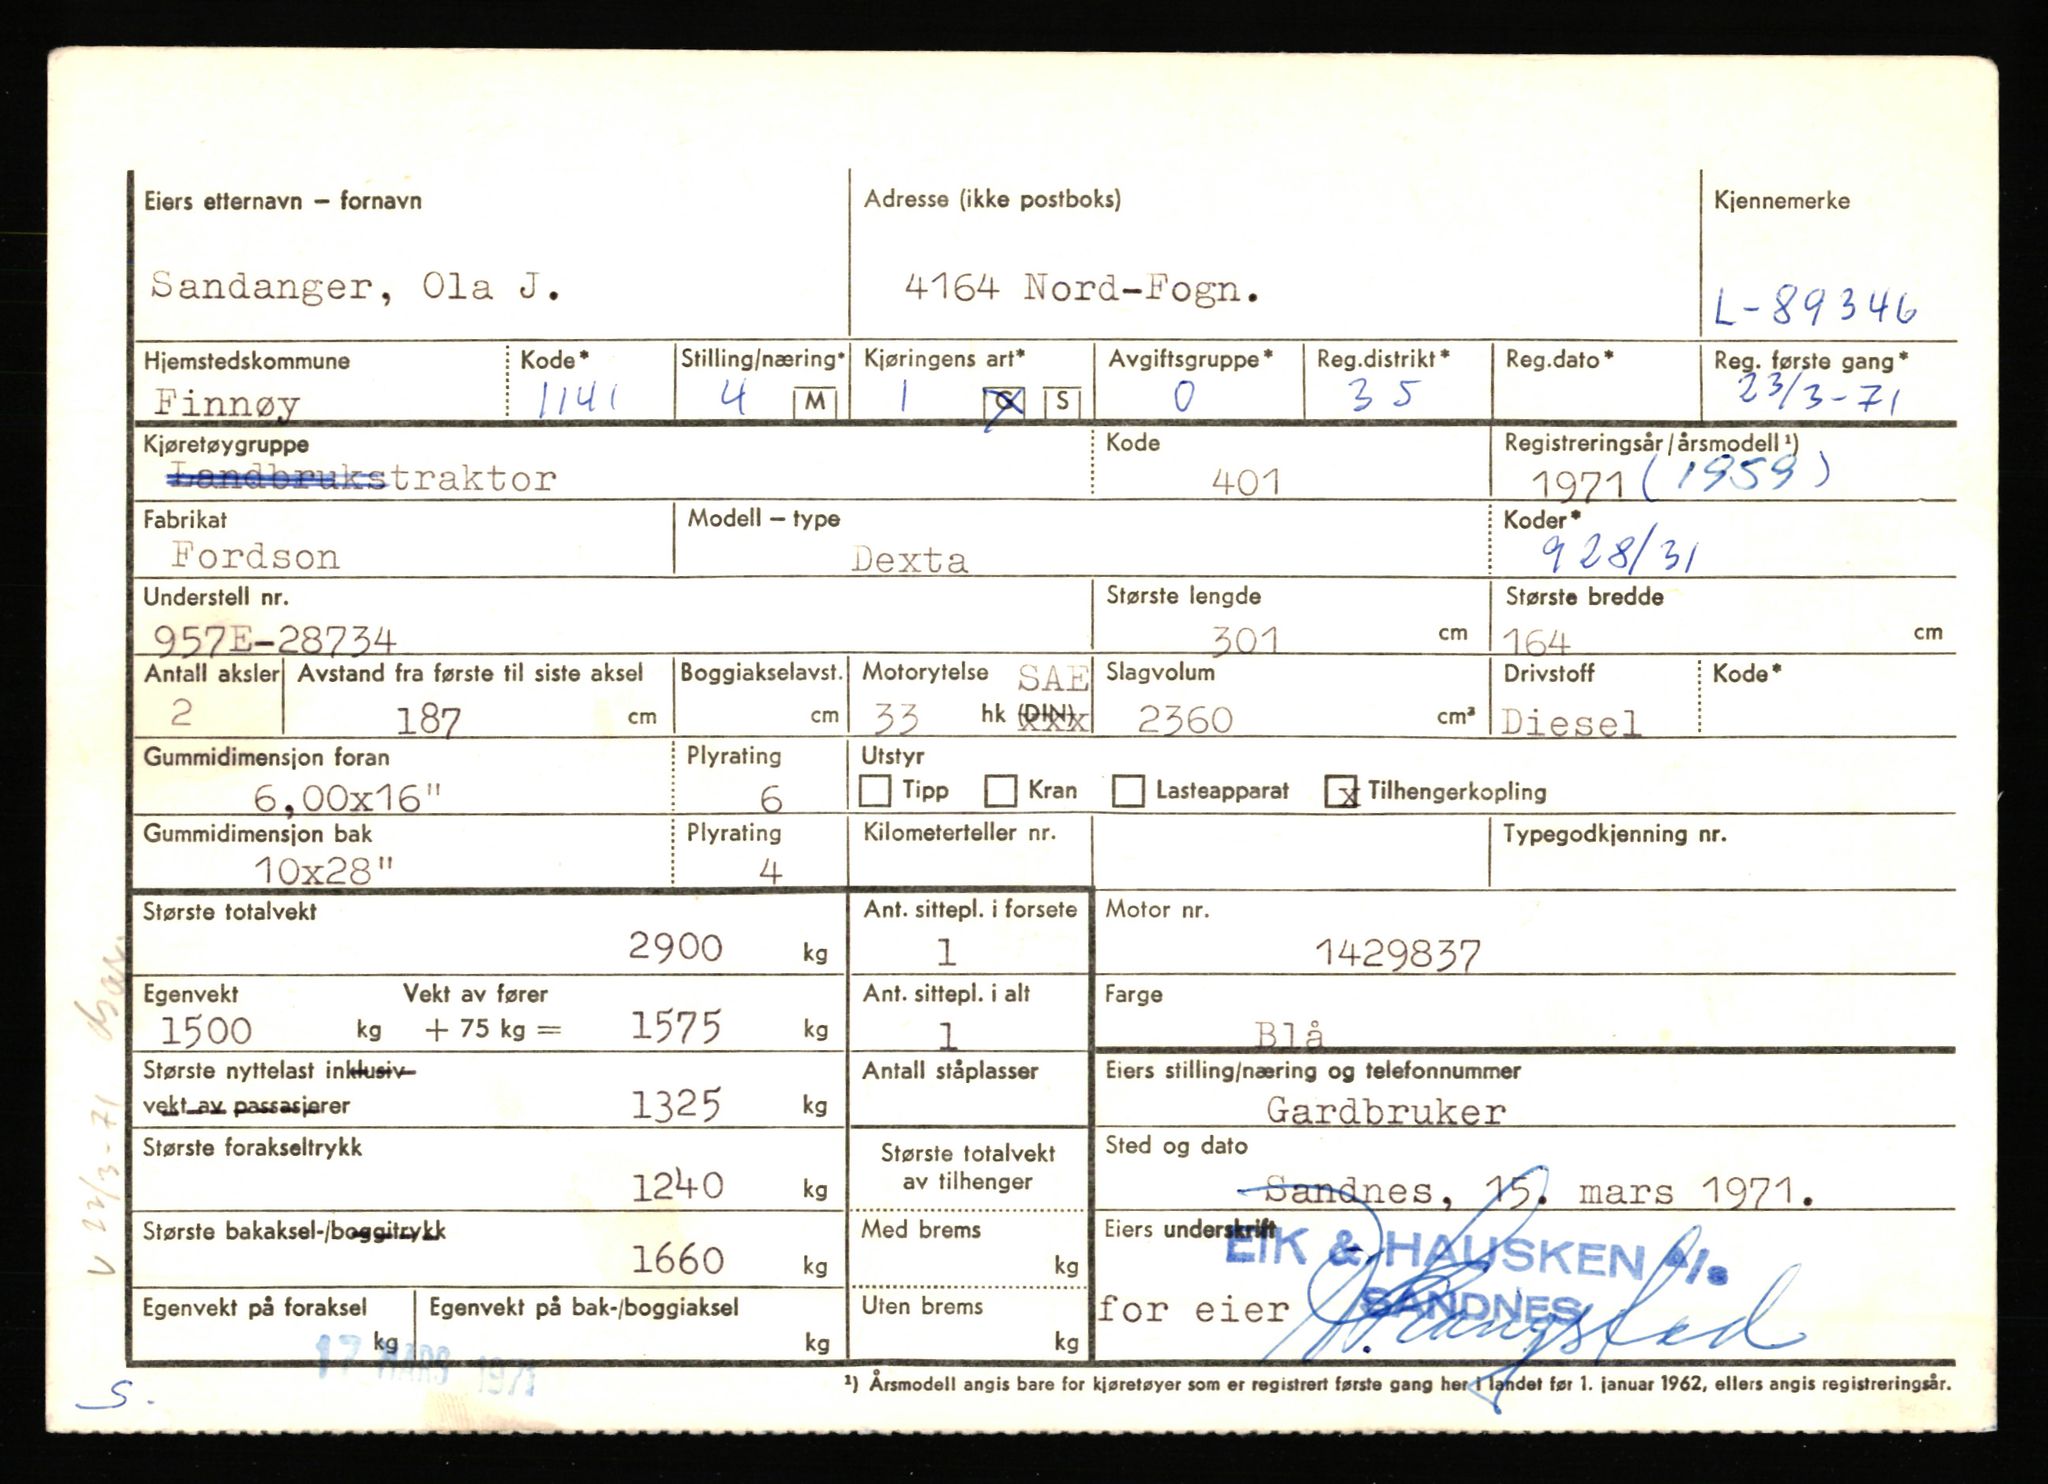 Eiers etternavn – fornavn
Sandanger, Ola J.
Adresse (ikke postboks)
4164 Nord-Fogn.
Kjennemerke
L-89346
Hjemstedskommune
Finnøy
Kode*
1141
Stilling/næring*
4 M
Kjøringens art*
1 G S
Avgiftsgruppe*
0
Reg.distrikt*
35
Reg.dato*
Reg. første gang*
23/3-71
Kjøretøygruppe
Landbrukstraktor
Kode
401
Registreringsår/årsmodell¹)
1971 (1959)
Fabrikat
Fordson
Modell – type
Dexta
Koder*
928/31
Understell nr.
957E-28734
Største lengde
301 cm
Største bredde
164 cm
Antall aksler
2
Avstand fra første til siste aksel
187 cm
Boggiakselavst.
cm
Motorytelse SAE
33 hk (DIN) xxx
Slagvolum
2360 cm³
Drivstoff
Diesel
Kode*
Gummidimensjon foran
6,00x16"
Plyrating
6
Utstyr
Tipp Kran Lasteapparat x Tilhengerkopling
Gummidimensjon bak
10x28"
Plyrating
4
Kilometerteller nr.
Typegodkjenning nr.
Største totalvekt
2900 kg
Ant. sittepl. i forsete
1
Motor nr.
1429837
Egenvekt Vekt av fører
1500 kg + 75 kg = 1575 kg
Ant. sittepl. i alt
1
Farge
Blå
Største nyttelast inklusiv
vekt av passasjerer 1325 kg
Antall ståplasser
Eiers stilling/næring og telefonnummer
Gardbruker
Største forakseltrykk
1240 kg
Største totalvekt
av tilhenger
Sted og dato
Sandnes, 15. mars 1971.
Største bakaksel-/boggitrykk
1660 kg
Med brems
kg
Eiers underskrift
EIK & HAUSKEN A/S
SANDNES
for eier
Egenvekt på foraksel
kg
Egenvekt på bak-/boggiaksel
kg
Uten brems
kg
17 MARS 1971
¹) Årsmodell angis bare for kjøretøyer som er registrert første gang her i landet før 1. januar 1962, ellers angis registreringsår.
S.
V 22/3-71